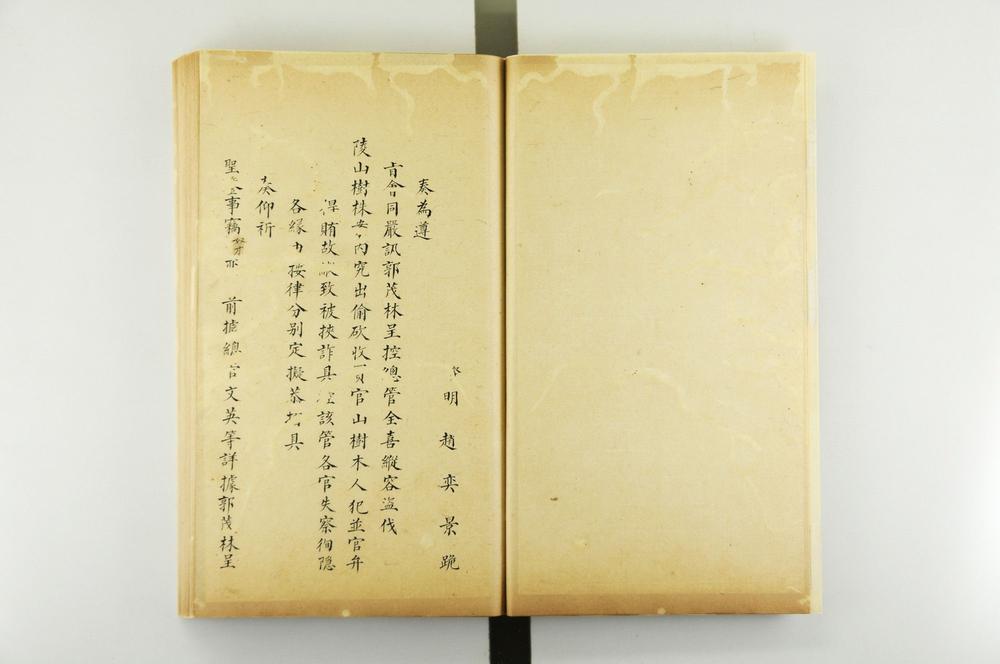 明 趙 奕 景 跪
奏為遵
會同嚴訊郭茂林呈控總管全喜縱容盜伐
陵山樹株 內究出偷砍收 官山樹木人犯並官弁
得賄故 致被挾詐具 該管各官失察徇隱
各緣由按律分別定擬恭摺具
奏仰祈
聖 事竊奴才 前據總管文英等詳據郭茂林呈